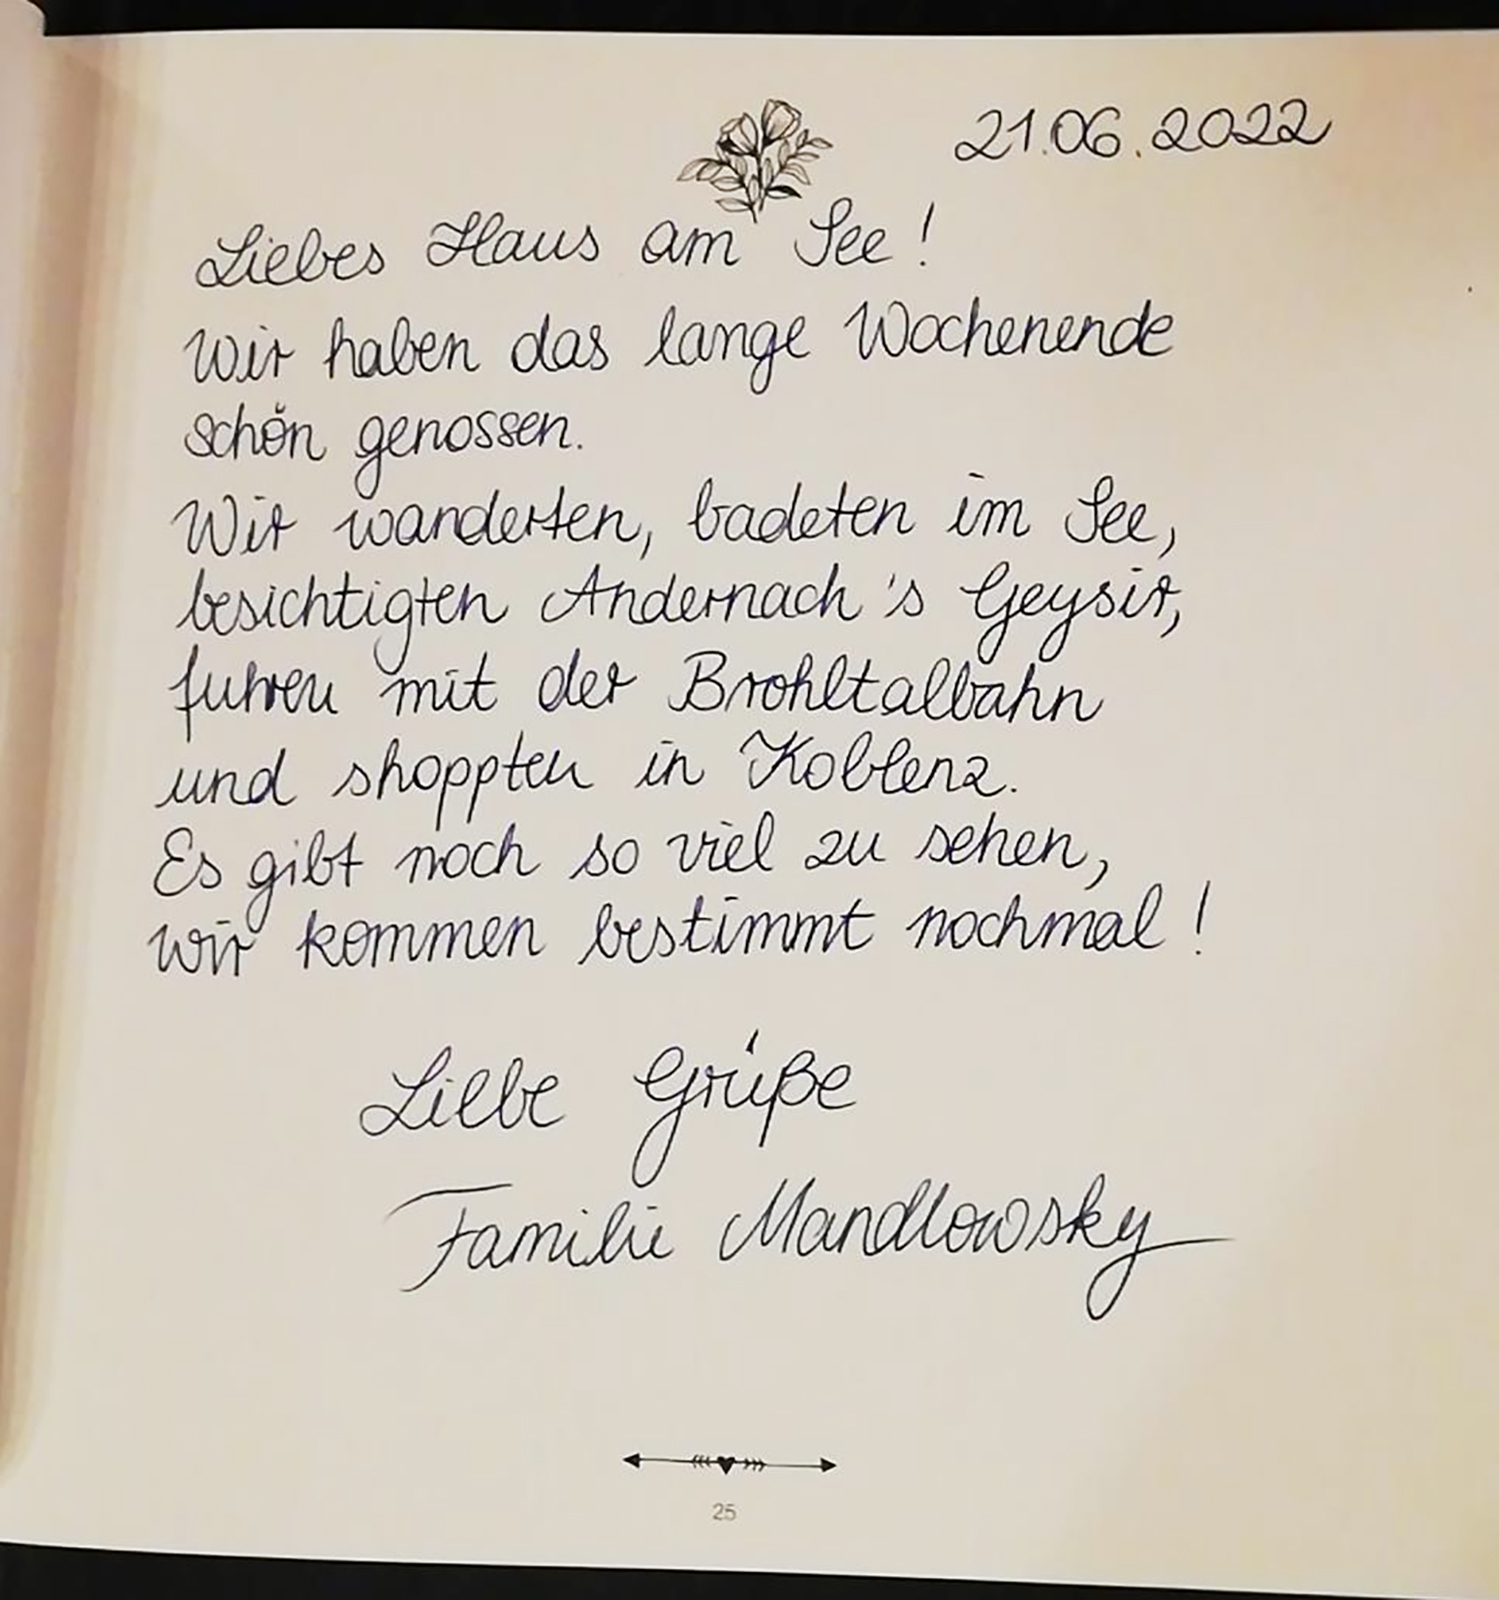 21.06.2022
Liebes Haus am See!
wir haben das lange Wochenende
schön genossen.
Wir wanderten, badeten im See,
besichtigten Andernach's Geysir,
fuhren mit der Brohltalbahn
und shoppten in Koblenz.
Es gibt noch so viel zu sehen,
wir kommen bestimmt nochmal!
Liebe Grüße
Familie Mandlowsky
25